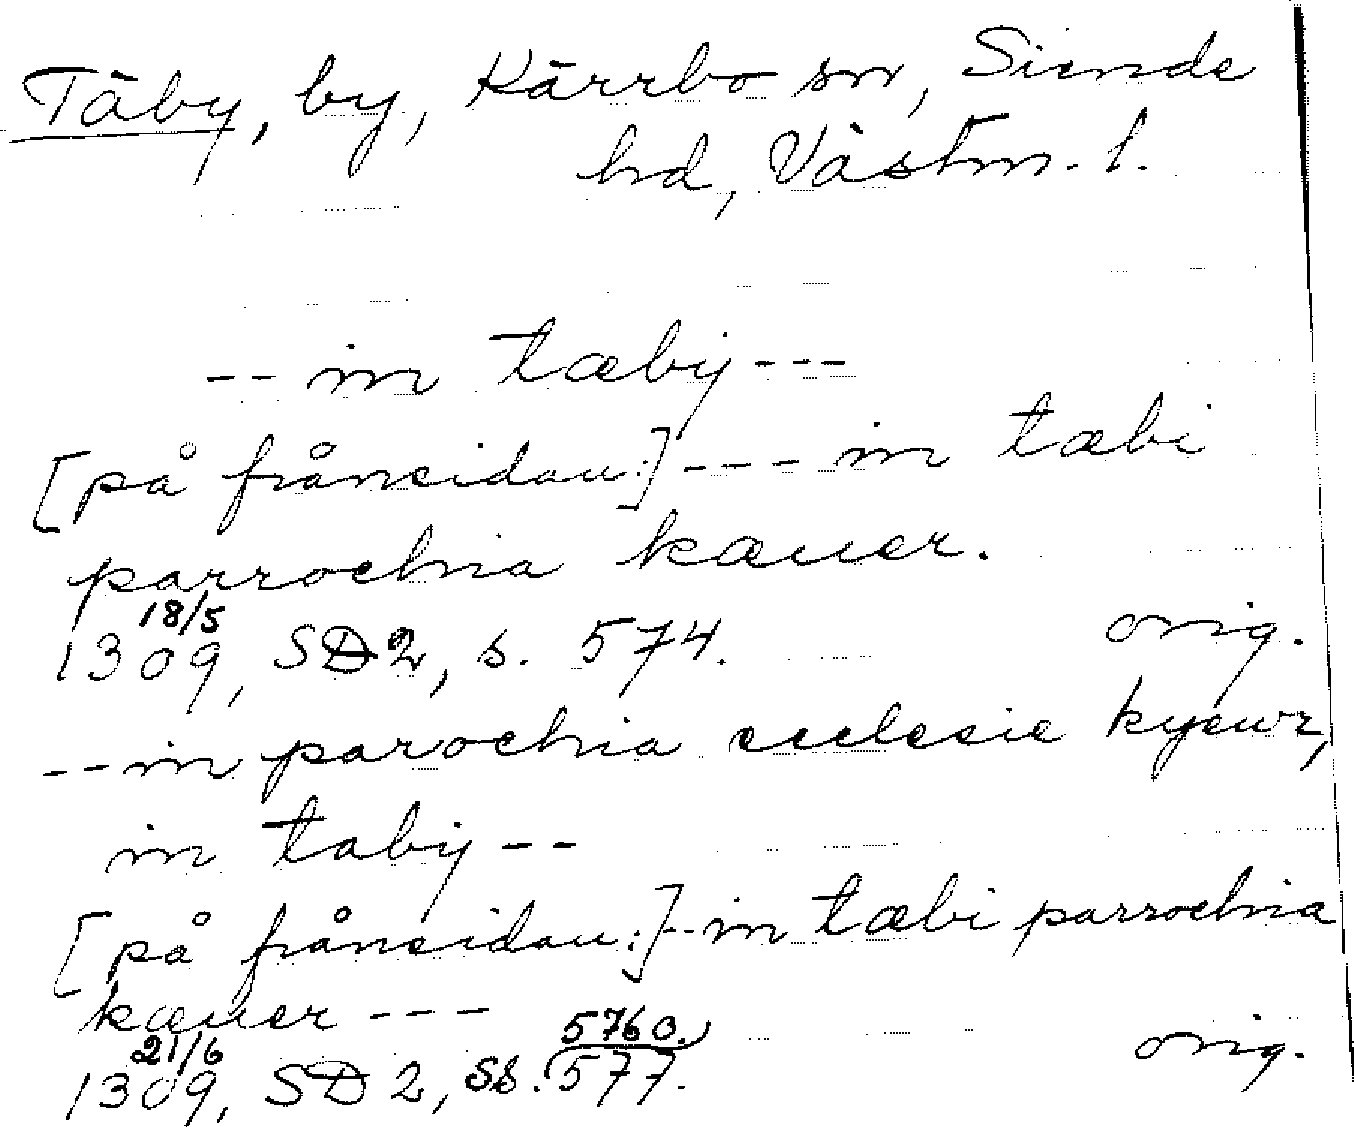 Täby, by, Kärrbo sn, Siende
hd, Västm. l.
-- in tæby ---
[på frånsidan:] --- in tæbi
parrochia kæuer.
18/5
1309, SD 2, s. 574. orig.
-- in parochia ecclesie kyeur,
in taby --
[på frånsidan:] -- in tæbi parrochia
kæuer ---
21/6
1309, SD 2, ss. 576 o. 577. orig.